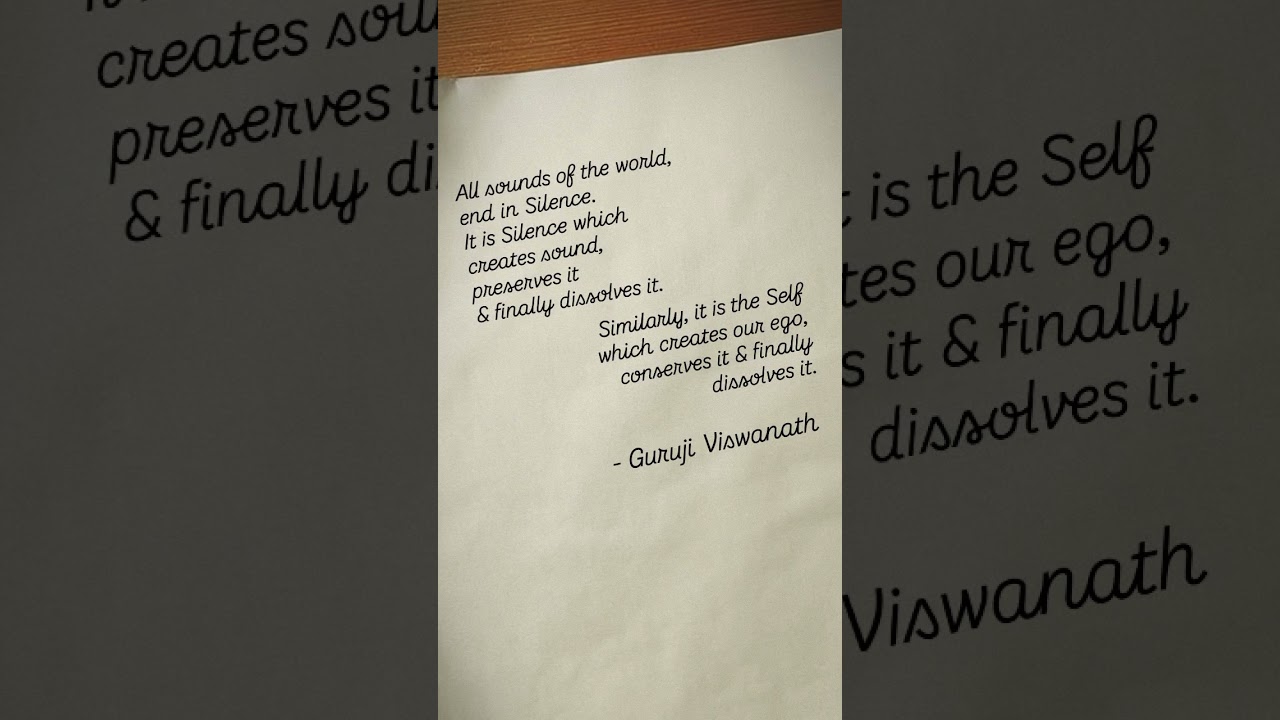 All sounds of the world,
end in Silence.
It is Silence which
creates sound,
preserves it
& finally dissolves it.
Similarly, it is the Self
which creates our ego,
conserves it & finally
dissolves it.
- Guruji Viswanath